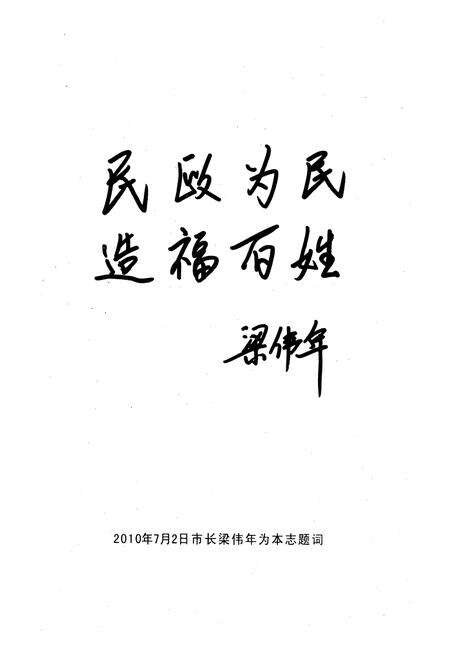 民政为民
造福百姓
梁伟年
2010年7月2日市长梁伟年为本志题词